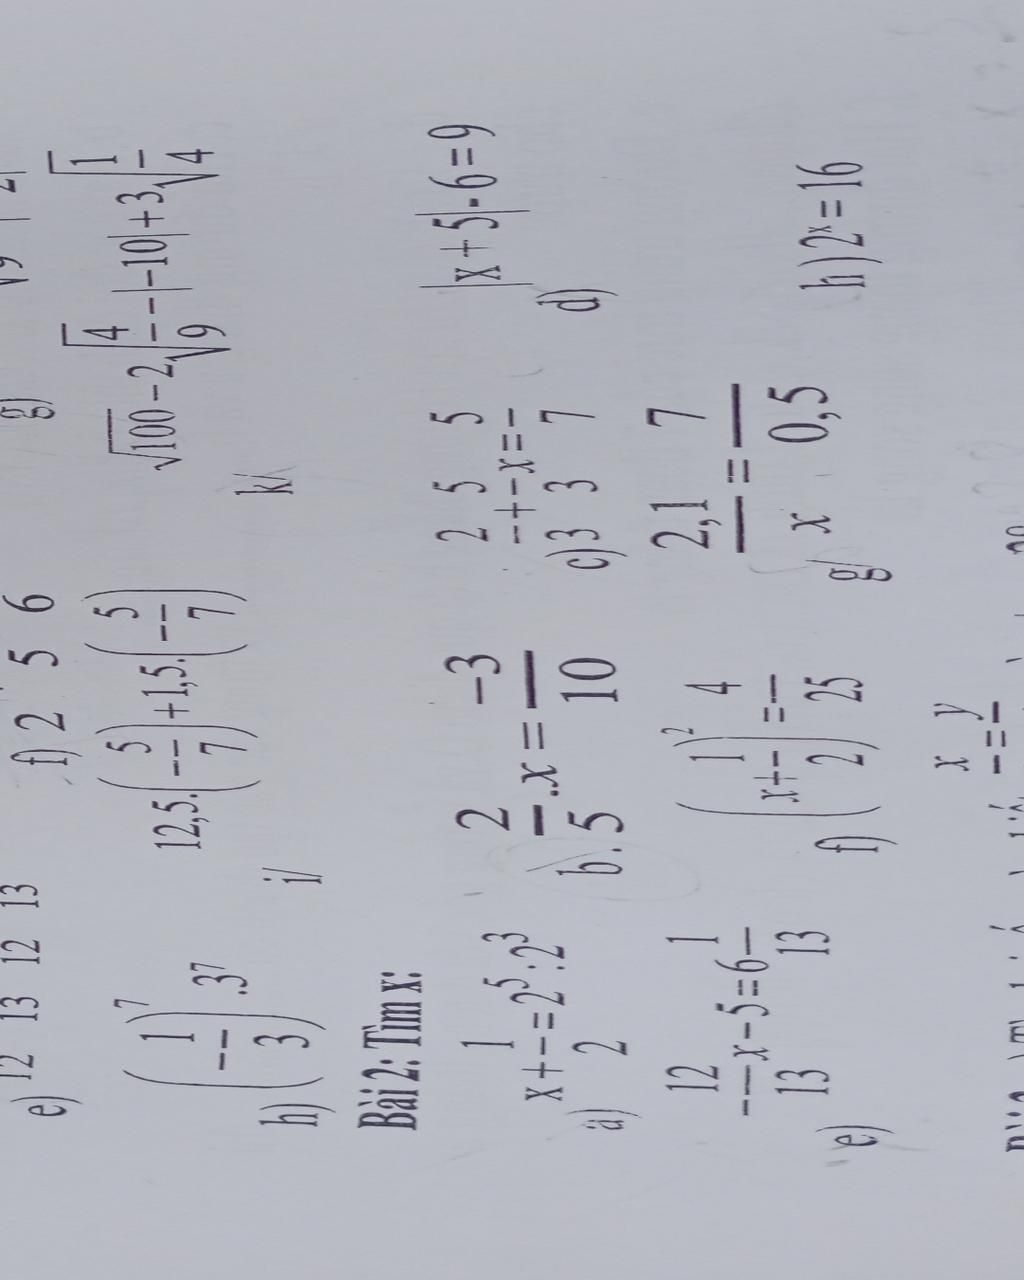 e) 12 13 12 13
f) 2 5 6
g)
h) (-1/3)^7 .3^7
i/ 12,5.(-5/7)+1,5.(-5/7)
k/ √100 - 2√(4/9) - |-10| + 3√(1/4)
Bài 2: Tìm x:
a) x + 1/2 = 2^5 : 2^3
b. 2/5 .x = -3/10
c) 2/3 + 5/3 x = 5/7
d) |x + 5| - 6 = 9
e) -12/13 x - 5 = 6 1/13
f) (x + 1/2)^2 = 4/25
g/ 2,1/x = 7/0,5
h) 2^x = 16
x/ = y/